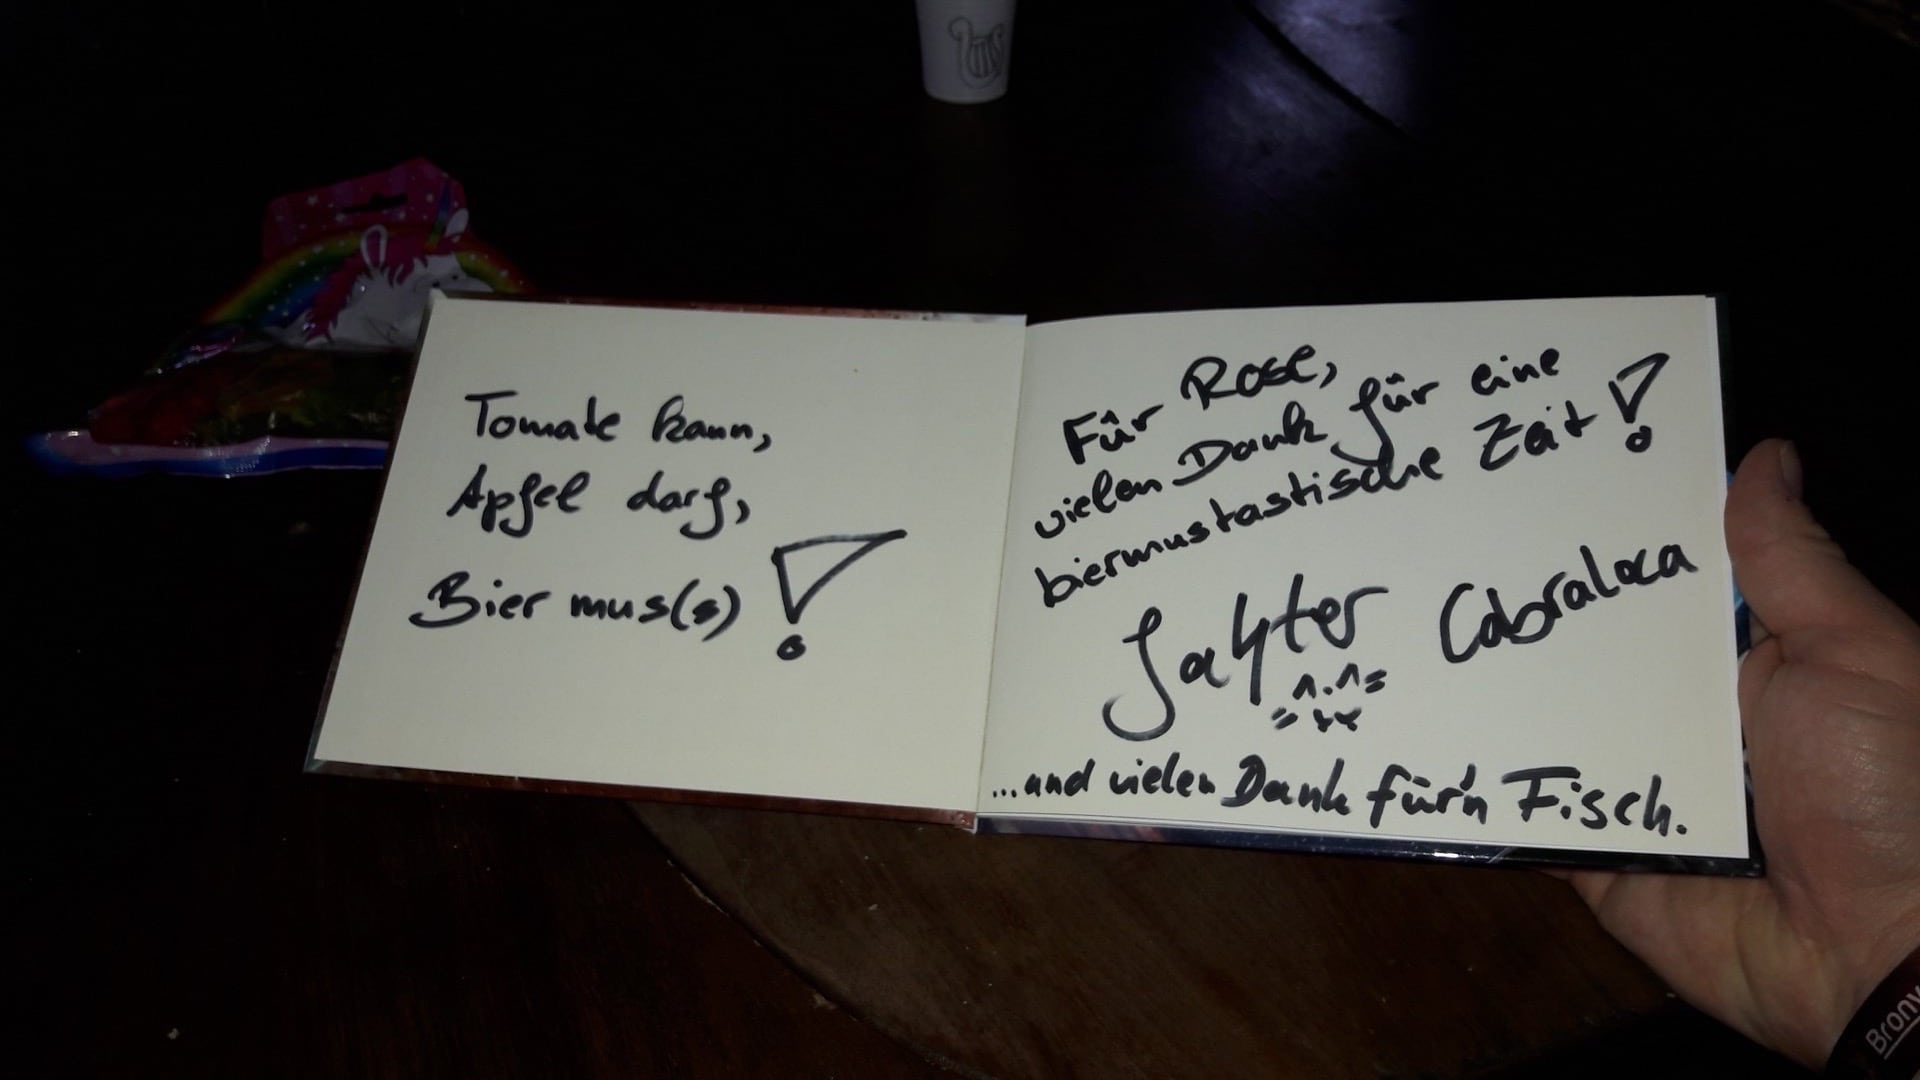 Tomate kann,
Apfel darf,
Bier mus(s)!
Für Rose,
vielen Dank für eine
biermustastische Zeit!
Cabraloca
...und vielen Dank für'n Fisch.
Brony